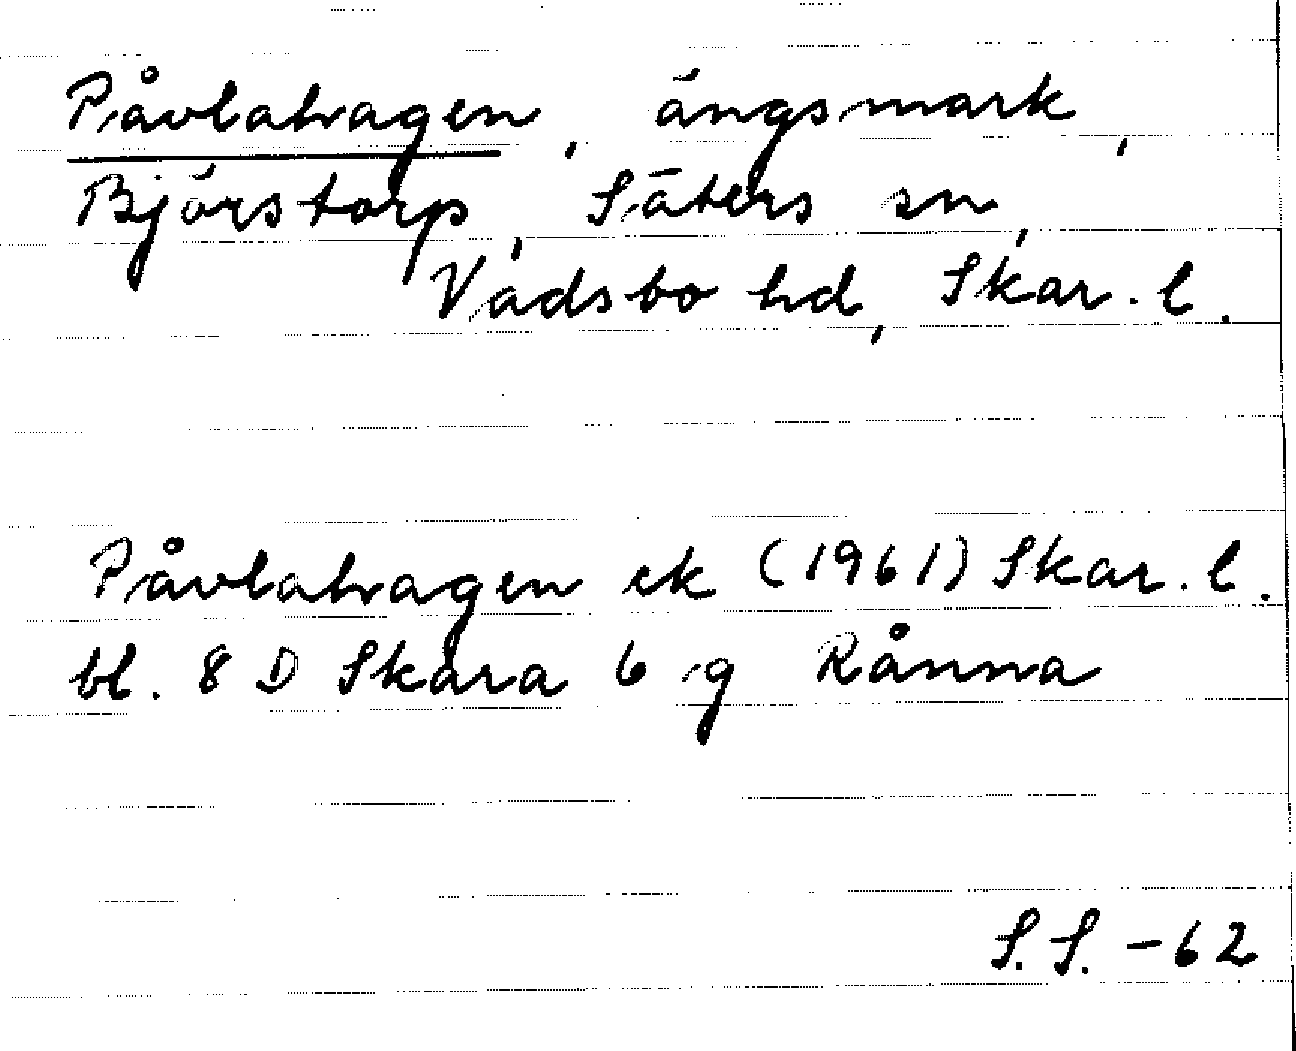 Påvlahagen, ängsmark,
Björstorp, Säters sn,
Vadsbo hd, Skar. l.
Påvlahagen ek (1961) Skar. l.
bl. 8 D Skara 6 g Rånna
S.S. -62